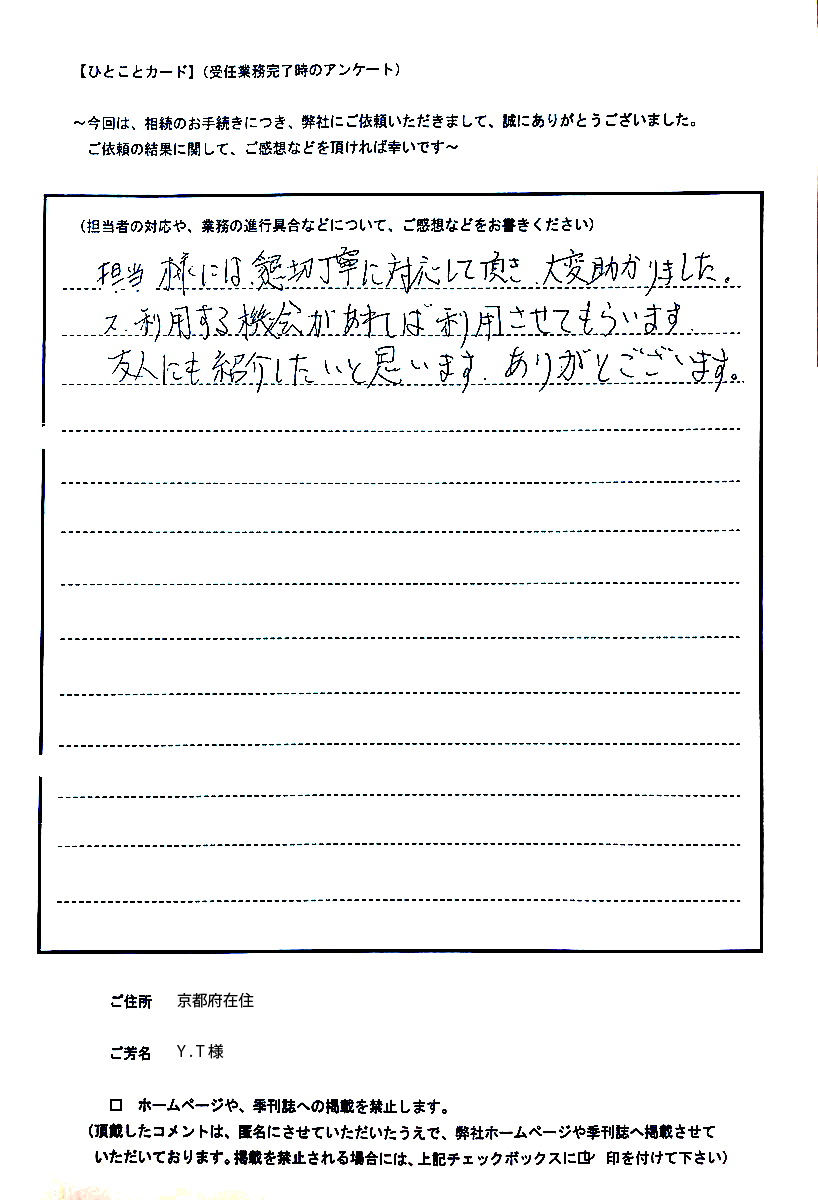 【ひとことカード】（受任業務完了時のアンケート）
～今回は、相続のお手続きにつき、弊社にご依頼いただきまして、誠にありがとうございました。
ご依頼の結果に関して、ご感想などを頂ければ幸いです～
（担当者の対応や、業務の進行具合などについて、ご感想などをお書きください）
担当 様には懇切丁寧に対応して頂き 大変助かりました。
又.利用する機会があれば利用させてもらいます.
友人にも紹介したいと思います.ありがとございます。
ご住所 京都府在住
ご芳名 Y.T様
□ ホームページや、季刊誌への掲載を禁止します。
（頂戴したコメントは、匿名にさせていただいたうえで、弊社ホームページや季刊誌へ掲載させて
いただいております。掲載を禁止される場合には、上記チェックボックスに☑ 印を付けて下さい）